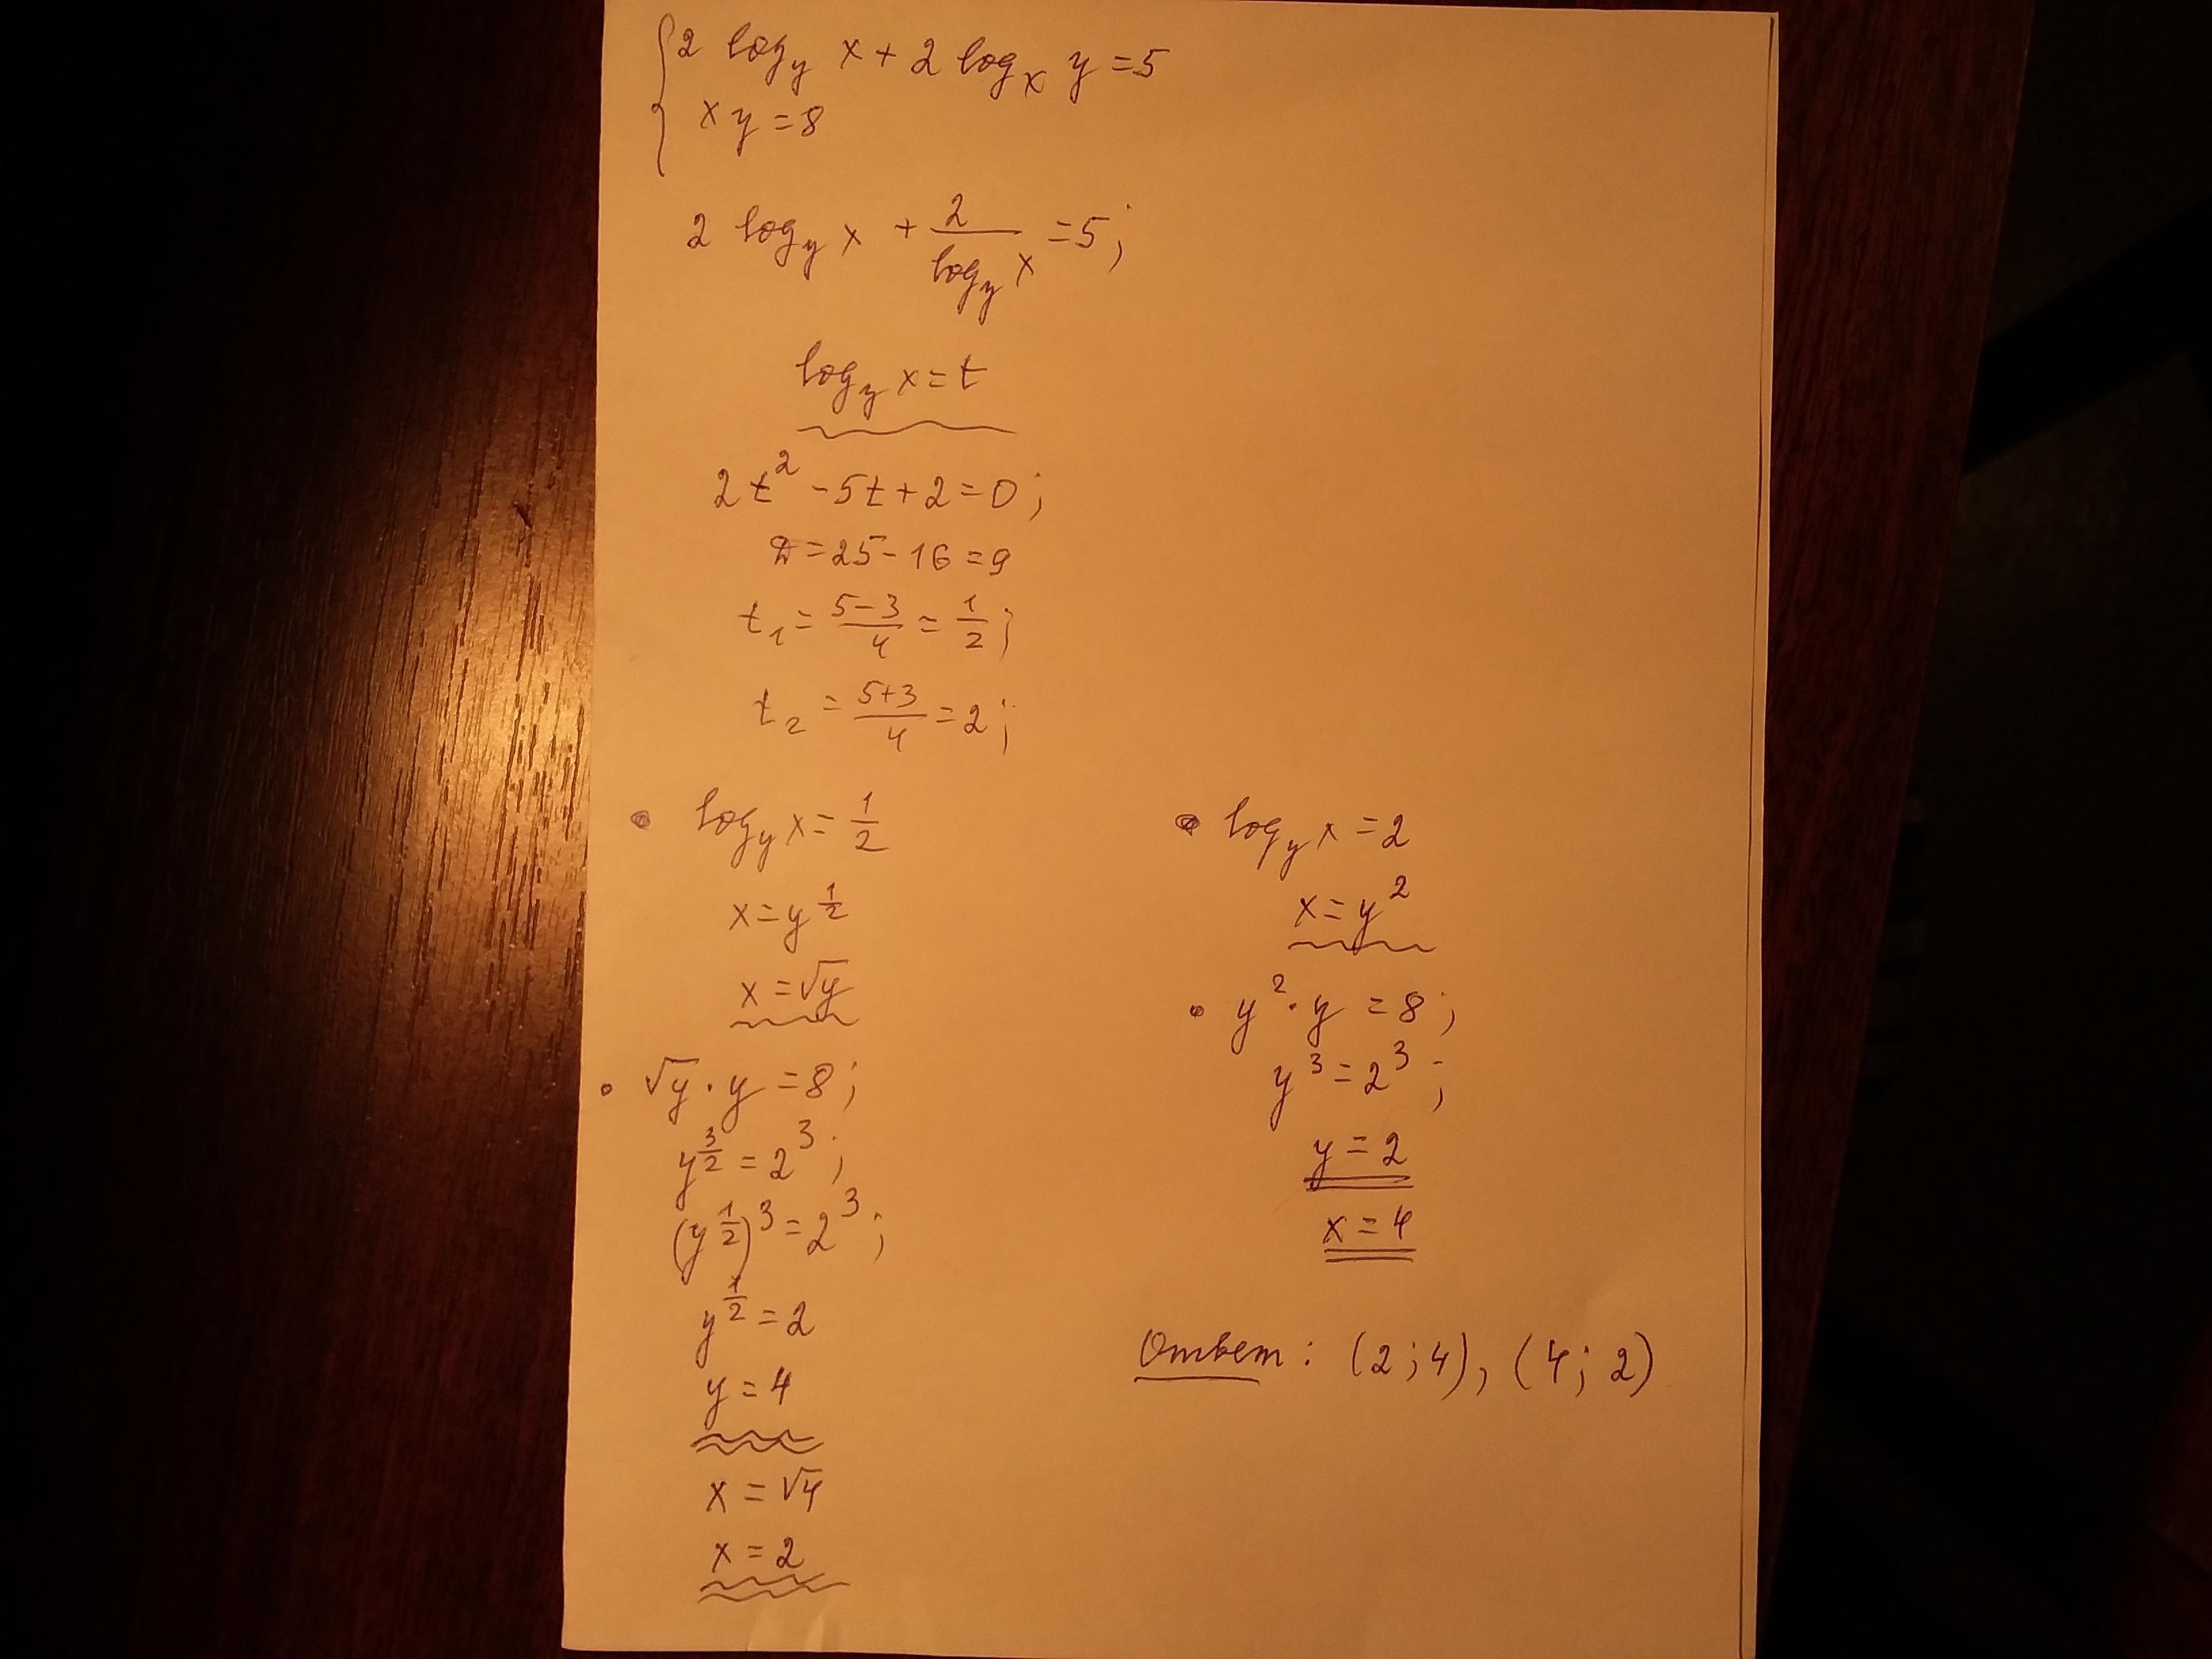 {2 log_y x + 2 log_x y = 5
xy = 8
2 log_y x + 2/(log_y x) = 5;
log_y x = t
2t² - 5t + 2 = 0;
D = 25 - 16 = 9
t₁ = (5-3)/4 = 1/2;
t₂ = (5+3)/4 = 2;
• log_y x = 1/2
x = y^(1/2)
x = √y
• √y · y = 8;
y^(3/2) = 2³;
(y^(1/2))³ = 2³;
y^(1/2) = 2
y = 4
x = √4
x = 2
• log_y x = 2
x = y²
• y² · y = 8;
y³ = 2³;
y = 2
x = 4
Ответ: (2;4), (4;2)